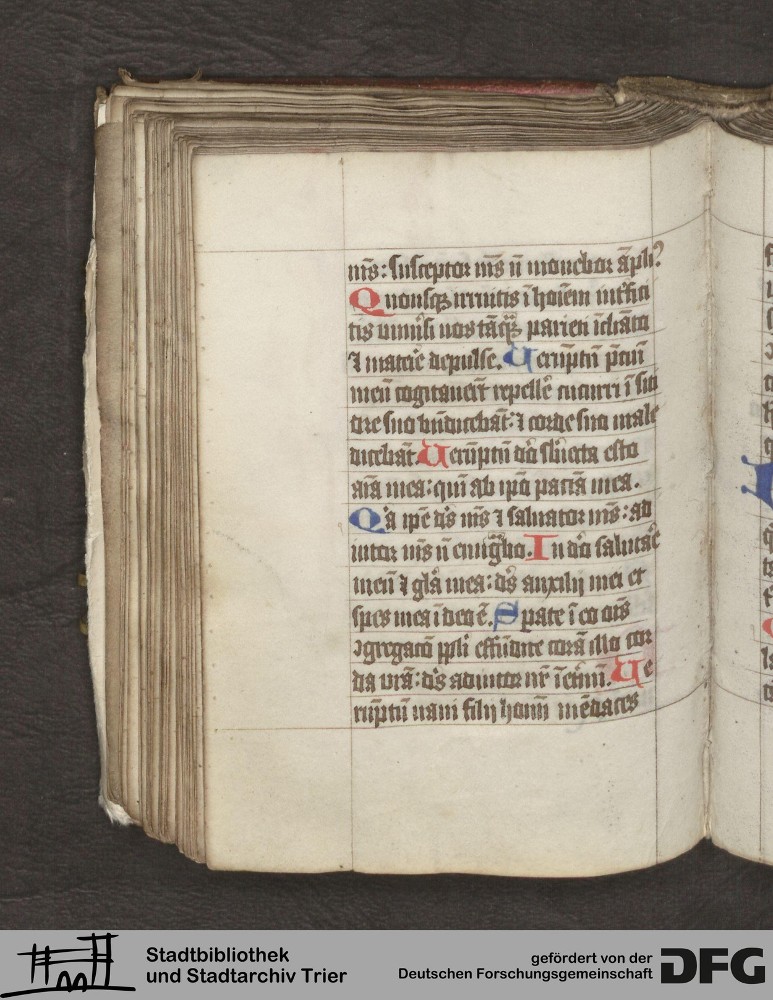 mīs: susceptor mīs nō mouebor āpli⁹
Quousqȝ irruitis ī hoīem int̄fici
tis vniu̇si uos tāqȝ parieti īclīato
⁊ macerie depulse. Uerūptn̄ p̄ciū
meū cogitauer̄t repelle᷑ cucurri ī siti
ore suo bn̄dicebāt: ⁊ corde suo male
dicebāt. Uerūptn̄ dō sb̄iecta esto
aīa mea: qm̄ ab ip̄o paciā mea.
Q̇a ip̄e ds̄ mīs ⁊ saluator mīs: ad
iutor mīs nō emigᵃbo. In dō salutāe
meū ⁊ glā mea: ds̄ auxilij mei et
spes mea ī deo ē. Spate ī eo oīs
ↄgregacō ppl̄i effūdite corā illo cor
da vrā: ds̄ adiutor nr̄ ī et̄nū. Ue
rūptn̄ uani filij hoīm mēdaces
Stadtbibliothek
und Stadtarchiv Trier
gefördert von der
Deutschen Forschungsgemeinschaft
DFG